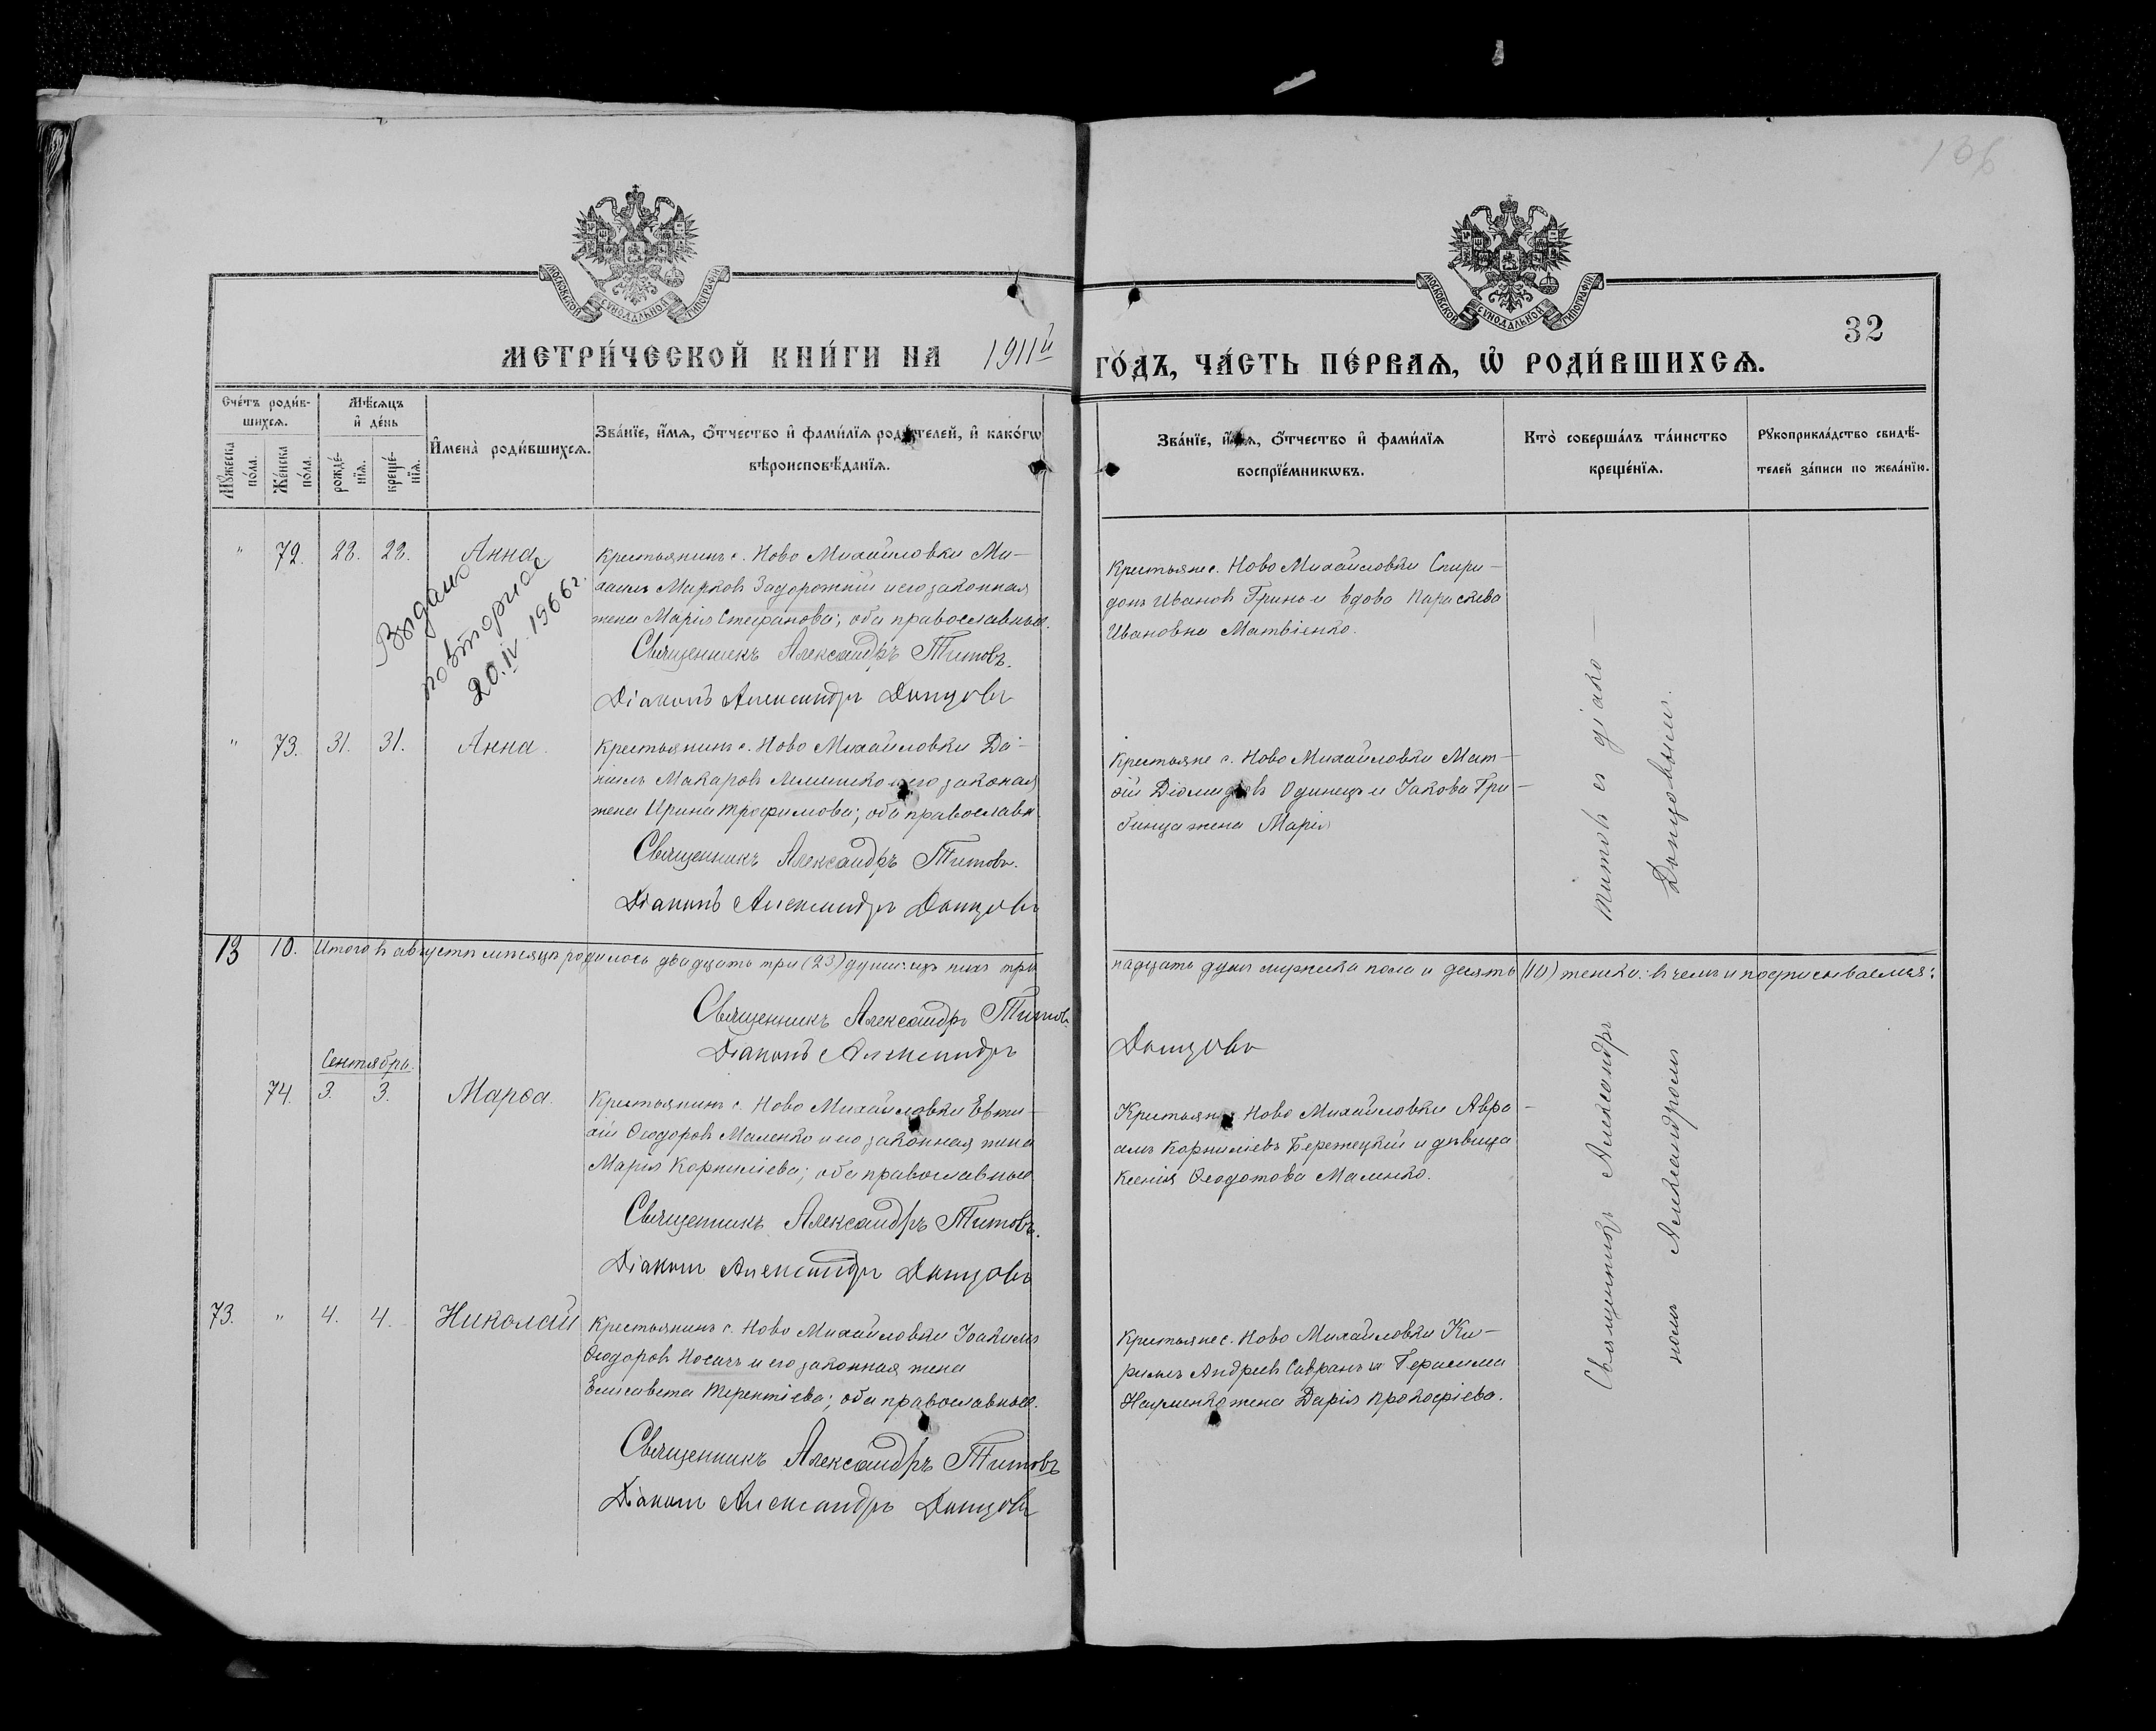 166
МОСКОВСКОЙ СѴНОДАЛЬНОЙ ТИПОГРАФІИ
МОСКОВСКОЙ СѴНОДАЛЬНОЙ ТИПОГРАФІИ
32
МЕТРИ́ЧЕСКОЙ КНИ́ГИ НА 1911й ГО́ДЪ, ЧА́СТЬ ПЕ́РВАѦ, Ѡ҆ РОДИ́ВШИХСѦ.
Сче́тъ роди́в-
шихсѧ.
Мѣ́сѧцъ
и҆ де́нь
Мꙋ́жеска
по́ла.
Же́нска
по́ла.
рожде́-
нїѧ.
креще́-
нїѧ.
И҆мена̀ роди́вшихсѧ.
Зва́нїе, и҆́мѧ, ѻ҆́тчество и҆ фами́лїѧ роди́телей, и҆ како́гѡ
вѣроисповѣ́данїѧ.
Зва́нїе, и҆́мѧ, ѻ҆́тчество и҆ фами́лїѧ
воспрїе́мникѡвъ.
Кто̀ соверша́лъ та́инство
креще́нїѧ.
Рꙋкоприкла́дство свидѣ́-
телей за́писи по жела́нїю.
" 72. 28. 28. Анна
Выдано
повторное
20.IV.1966г.
Крестьянинъ с. Ново Михайловки Ми-
хаилъ Марковъ Задорожній и его законная
жена Марія Стефанова; оба православные.
Священникъ Александръ Титовъ.
Діаконъ Александръ Донцовъ
Крестьяне с. Ново Михайловки Спири-
донъ Ивановъ Гринь и вдова Параскева
Ивановна Матвіенко.
" 73. 31. 31. Анна.
Крестьянинъ с. Ново Михайловки Да-
ніилъ Макаровъ и его законая
жена Ирина Трофимова; оба православн
Священникъ Александръ Титовъ.
Діаконъ Александръ Донцовъ
Крестьяне с. Ново Михайловки Мат-
ѳій Діомидовъ Одинецъ и Іакова Гри-
бинца жена Марія
13 10. Итого въ августѣ мѣсяцѣ родилось двадцать три (23) души: изъ нихъ три
надцать душъ мужеска пола и десять (10) женска: въ чемъ и подписываемся:
Священникъ Александръ Титовъ
Діаконъ Александръ Донцовъ
Сентябрь.
74. 3. 3. Марѳа.
Крестьянинъ с. Ново Михайловки Евти-
хій Ѳеодоровъ Маленко и его законная жена
Марія Корниліева; оба православные
Священникъ Александръ Титовъ.
Діаконъ Александръ Донцовъ
Крестьяне с. Ново Михайловки Авра-
амъ Корниліевъ Бережецкій и дѣвица
Ксенія Ѳеодотова Маленко.
73. " 4. 4. Николай
Крестьянинъ с. Ново Михайловки Іоакимъ
Ѳеодоровъ Носачъ и его законная жена
Елисавета Терентіева; оба православные.
Священникъ Александръ Титовъ
Діаконъ Александръ Донцовъ
Крестьяне с. Ново Михайловки Ки-
риллъ Андреевъ Савранъ и Герасима
Науменко жена Дарія Прокофіева.
Священникъ Александръ Титовъ съ діако-
номъ Александромъ Донцовымъ.